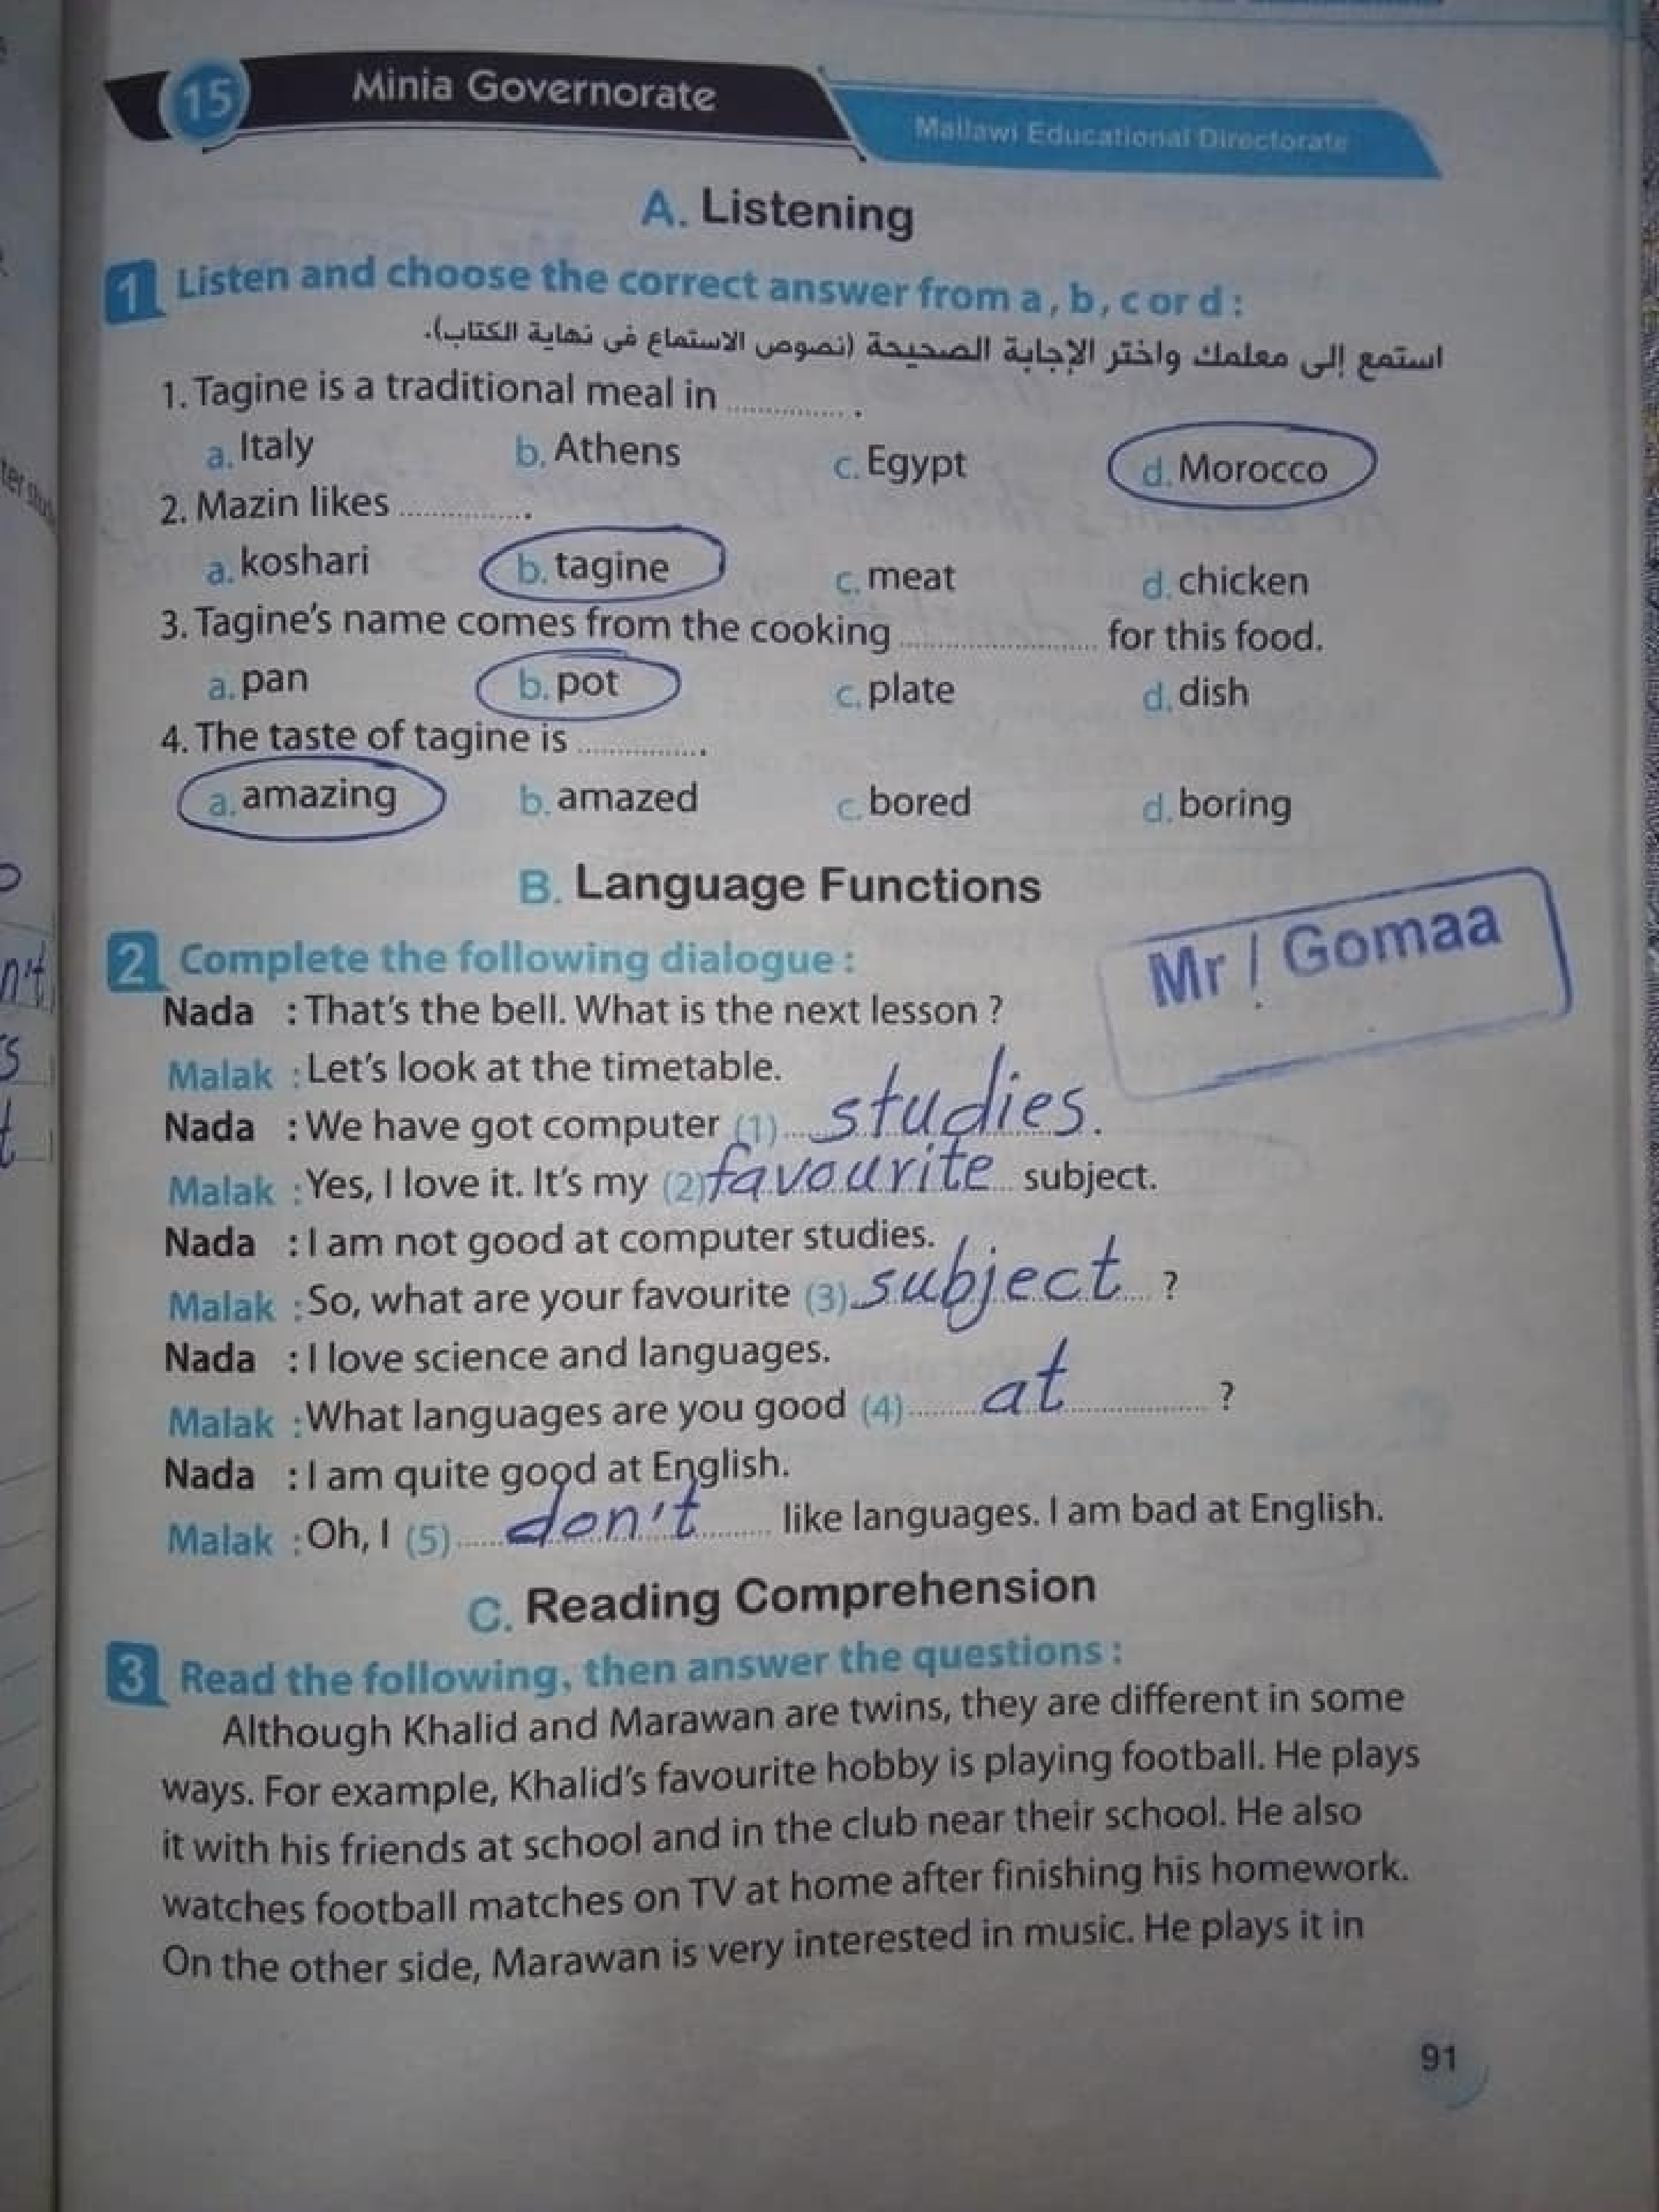 15 Minia Governorate Mallawi Educational Directorate
A. Listening
1 Listen and choose the correct answer from a, b, c or d :
استمع إلى معلمك واختر الإجابة الصحيحة (نصوص الاستماع فى نهاية الكتاب).
1. Tagine is a traditional meal in .............. .
a. Italy b. Athens c. Egypt d. Morocco
2. Mazin likes .............. .
a. koshari b. tagine c. meat d. chicken
3. Tagine's name comes from the cooking .............. for this food.
a. pan b. pot c. plate d. dish
4. The taste of tagine is .............. .
a. amazing b. amazed c. bored d. boring
B. Language Functions
Mr / Gomaa
2 Complete the following dialogue :
Nada : That's the bell. What is the next lesson ?
Malak : Let's look at the timetable.
Nada : We have got computer (1) studies.
Malak : Yes, I love it. It's my (2) favourite subject.
Nada : I am not good at computer studies.
Malak : So, what are your favourite (3) subject ?
Nada : I love science and languages.
Malak : What languages are you good (4) at ?
Nada : I am quite good at English.
Malak : Oh, I (5) don't like languages. I am bad at English.
C. Reading Comprehension
3 Read the following, then answer the questions :
Although Khalid and Marawan are twins, they are different in some
ways. For example, Khalid's favourite hobby is playing football. He plays
it with his friends at school and in the club near their school. He also
watches football matches on TV at home after finishing his homework.
On the other side, Marawan is very interested in music. He plays it in
91